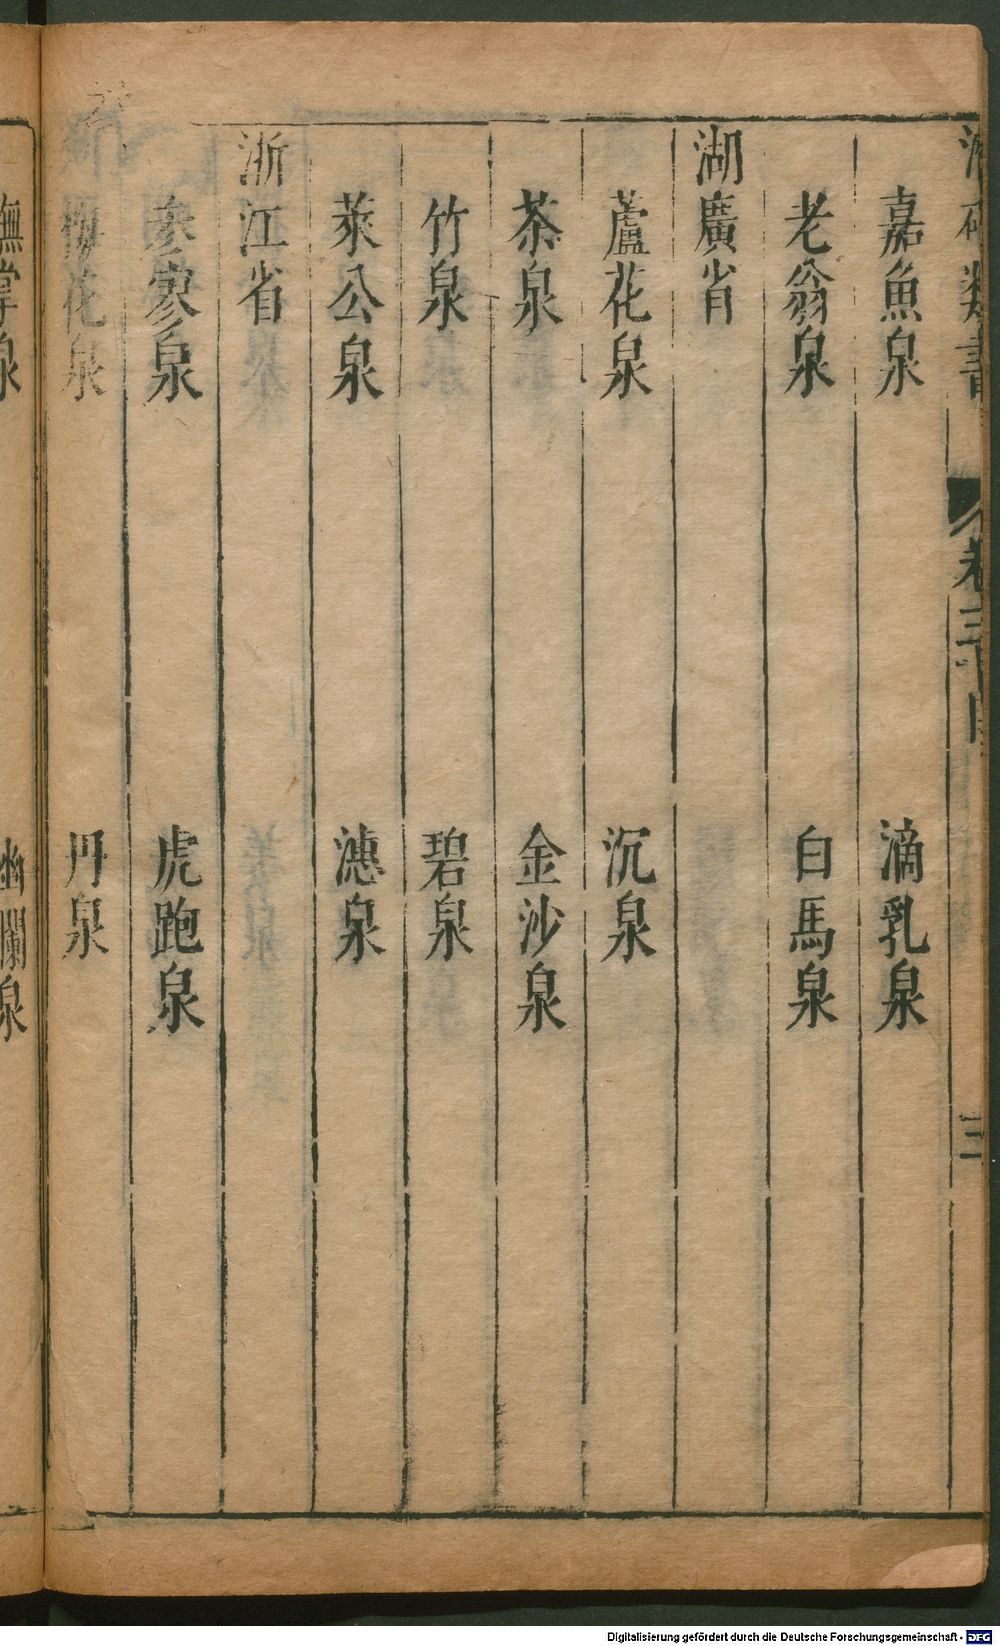 類書 卷三十目 三
嘉魚泉 滴乳泉
老翁泉 白馬泉
湖廣省
蘆花泉 沉泉
茶泉 金沙泉
竹泉 碧泉
萊公泉 漶泉
浙江省
參寥泉 虎跑泉
梅花泉 丹泉
撫掌泉 幽瀾泉
Digitalisierung gefördert durch die Deutsche Forschungsgemeinschaft - DFG